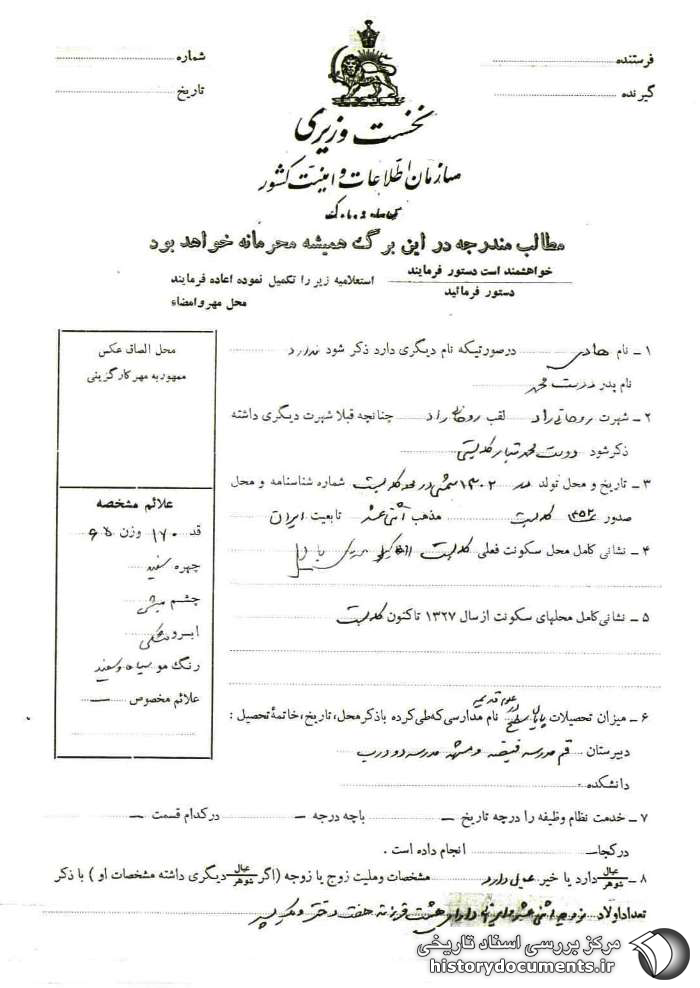 فرستنده
گیرنده
شماره
تاریخ
نخست وزیری
سازمان اطلاعات و امنیت کشور
مطالب مندرجه در این برگ همیشه محرمانه خواهد بود
خواهشمند است دستور فرمایند
دستور فرمائید
استعلامیه زیر را تکمیل نموده اعاده فرمایند
محل مهر و امضاء
محل الصاق عکس
ممهور به مهر کارگزینی
علائم مشخصه
قد ۱۷۰ وزن ۶۵
چهره سفید
چشم میشی
ابرو مشکی
رنگ مو سیاه و سفید
علائم مخصوص ــ
۱ ـ نام هادی درصورتیکه نام دیگری دارد ذکر شود ندارد
نام پدر دوست محمد
۲ ـ شهرت روحانی راد لقب روحانی راد چنانچه قبلا شهرت دیگری داشته
ذکر شود دوست محمد تبار
۳ ـ تاریخ و محل تولد ۱۳۰۲ شمسی در شماره شناسنامه و محل
صدور ۴۵۲ مذهب اثنی عشر تابعیت ایران
۴ ـ نشانی کامل محل سکونت فعلی
۵ ـ نشانی کامل محلهای سکونت از سال ۱۳۲۷ تاکنون
علوم قدیمه
۶ ـ میزان تحصیلات پایان سطح نام مدارسی که طی کرده با ذکر محل، تاریخ، خاتمهٔ تحصیل :
دبیرستان قم مدرسه فیضیه و مشهد مدرسه دودرب
دانشکده
۷ ـ خدمت نظام وظیفه را درچه تاریخ ــ باچه درجه ــ درکدام قسمت ــ
درکجا انجام داده است .
۸ ـ عیال/شوهر دارد یا خیر عیال دارد مشخصات و ملیت زوج یا زوجه (اگر عیال/شوهر دیگری داشته مشخصات او ) با ذکر
تعداد اولاد دارای هشت فرزند هفت دختر و یک پسر
مرکز بررسی اسناد تاریخی
historydocuments.ir